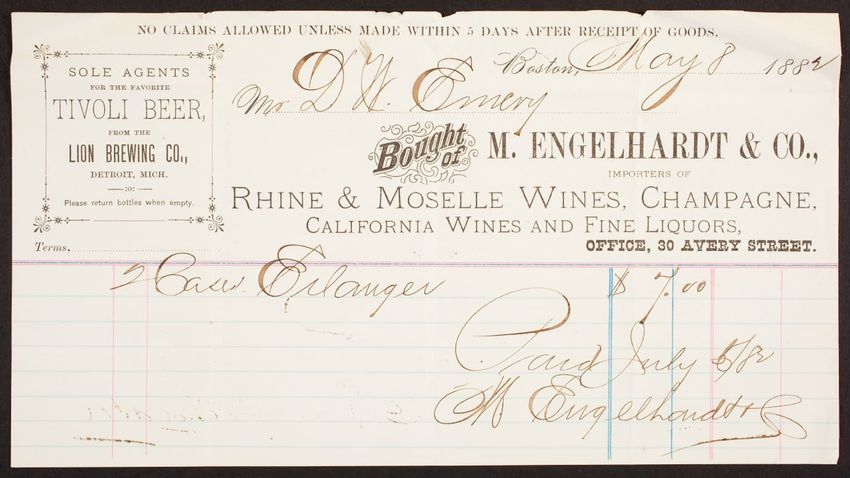 NO CLAIMS ALLOWED UNLESS MADE WITHIN 5 DAYS AFTER RECEIPT OF GOODS.
SOLE AGENTS
FOR THE FAVORITE
TIVOLI BEER,
FROM THE
LION BREWING CO.,
DETROIT, MICH.
:o:
Please return bottles when empty.
Boston, May 8 1882
Mr D. W. Emery
Bought of M. ENGELHARDT & CO.,
IMPORTERS OF
RHINE & MOSELLE WINES, CHAMPAGNE,
CALIFORNIA WINES AND FINE LIQUORS,
OFFICE, 30 AVERY STREET.
Terms.
2 Cases Erlanger $ 7.00
Paid July 5/82
M Engelhardt & Co